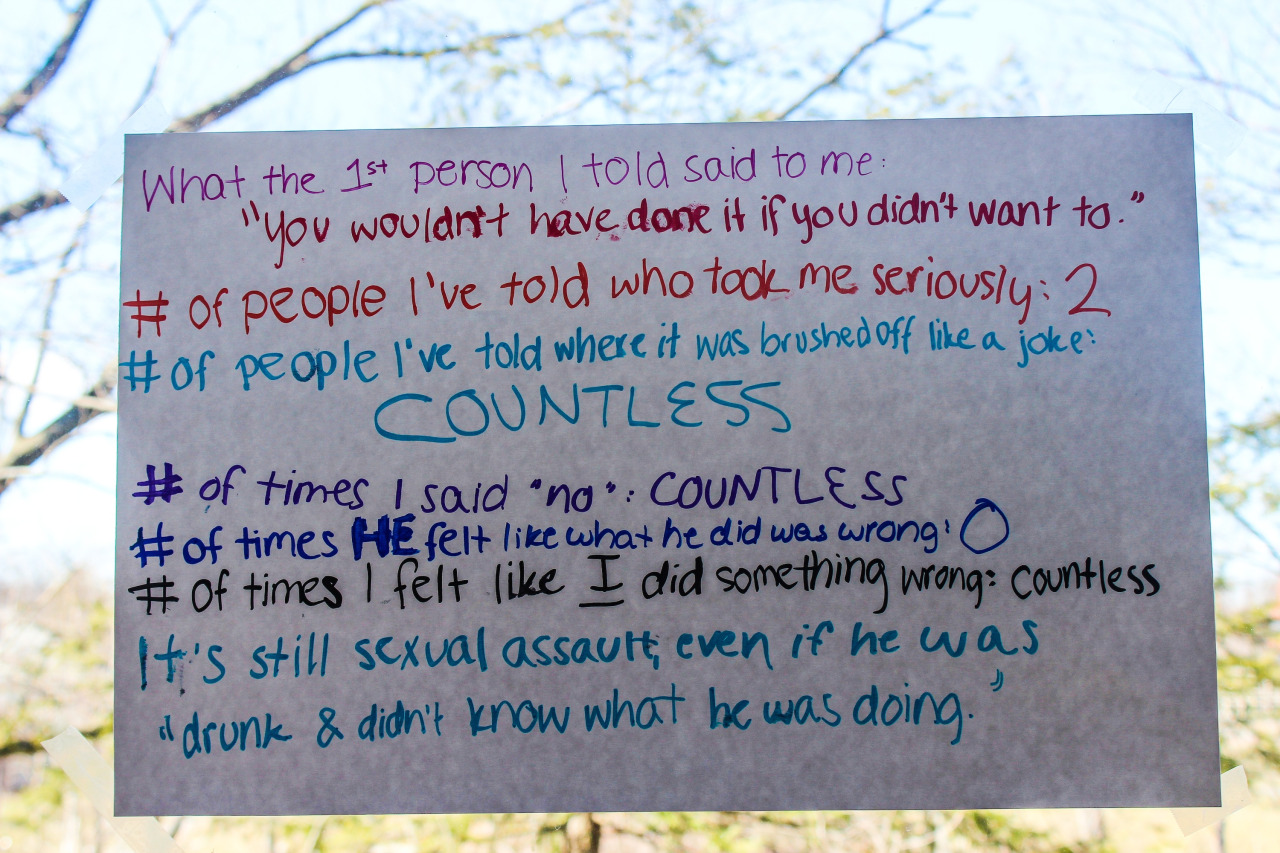 What the 1st person I told said to me:
"You wouldn't have done it if you didn't want to."
# of people I've told who took me seriously: 2
# of people I've told where it was brushed off like a joke:
COUNTLESS
# of times I said "no": COUNTLESS
# of times HE felt like what he did was wrong: 0
# of times I felt like I did something wrong: countless
It's still sexual assault, even if he was
"drunk & didn't know what he was doing."